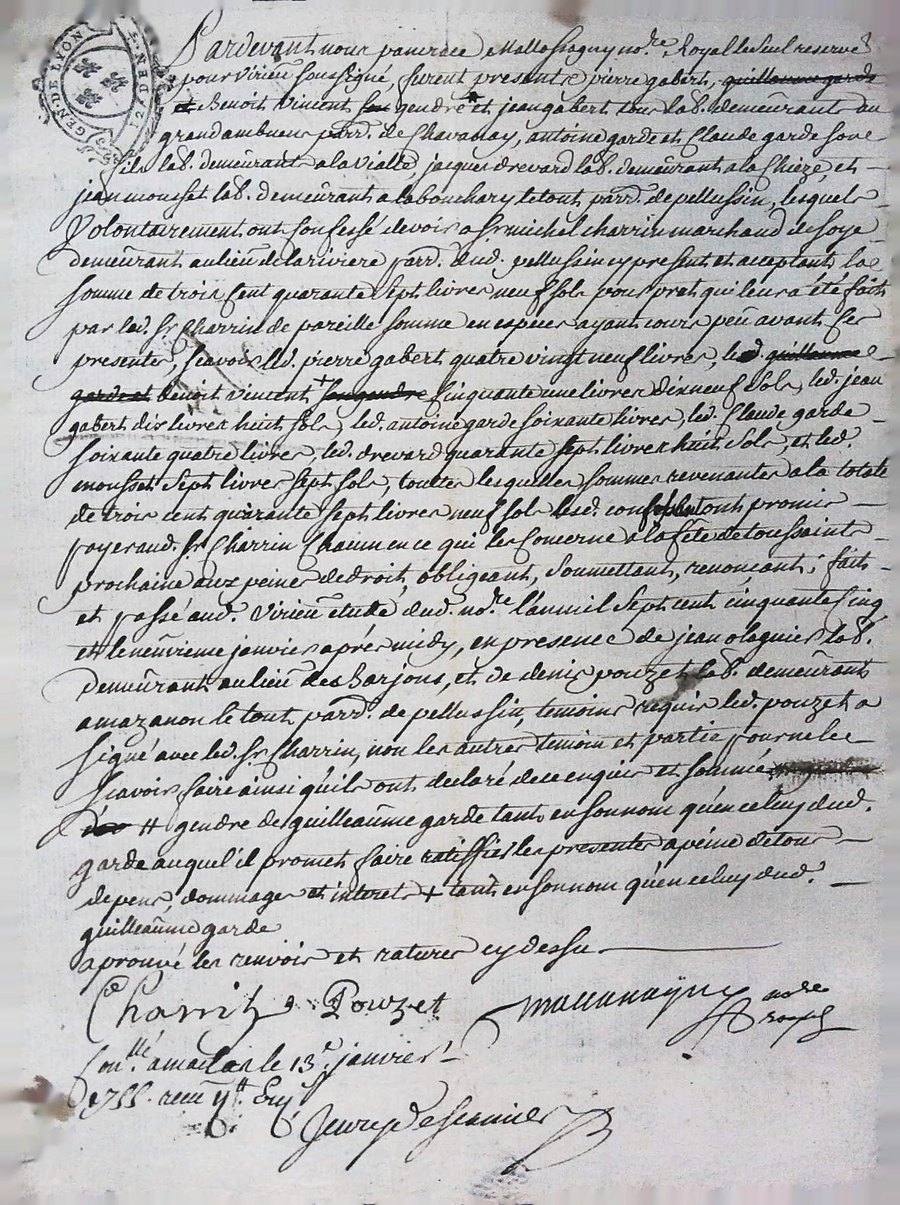 GEN. DE LYON
Pardevant nous notre Royal le seul reservé
pour Virieu soussigné, furent present pierre gabert, guillaume garde
et Benoit Vincent son gendre et jean gabert tous lab. demeurants au
grand ambuens parr. de Chavanay, antoine garde et Claude garde sone
fils lab. demeurant a la Vialle, jacques drevard lab. demeurant a la Chieze, et
jean mousset lab. demeurant a la bouchary le tout parr. de pellussin, lesquels
Volontairement ont Confessé devoir a Sr michel charrin marchand de soye
demeurant au lieu de la riviere parr. dud. pellussin cy present et acceptant la
somme de trois Cent quarante sept livres neuf sols pour pret qui leur a été fait
par led. Sr Charrin de pareille somme en especes ayant cours peu avant Ces
presentes, scavoir led. pierre gabert quatre vingt neuf livres, led. guillaume
garde et benoit vincent son gendre Cinquante une livres dix neuf sols, led. jean
gabert dix livres huit sols, led. antoine garde soixante livres, led. Claude garde
soixante quatre livres, led. drevard quarante sept livres huit sols, et led.
mousset sept livres sept sols, toutes lesquelles sommes revenantes a la totale
de trois cent quarante sept livres neuf sols lesd. ont promis
payer aud. Sr Charrin Chacun en ce qui les Concerne a la fête de toussaint
prochaine aux peines de droit, obligeant, soumettant, renonçant; fait
et passé aud. Virieu étude dud. nore l'an mil sept cent cinquante Cinq
et le neuvieme janvier après midy, en presence de jean olagnier lab.
demeurant au lieu des Barjons, et de denis pouzet lab. demeurant
a mazanon le tout parr. de pellussin, temoins requis led. pouzet a
signé avec led. Sr Charrin, non les autres temoin et partie pour ne le
scavoir faire ainsi qu'ils ont declaré de ce enquis et sommé
# gendre de guilleaume garde tant en son nom qu'en celuy dud.
garde auquel il promet faire ratiffier les presentes a peine de tous
depens, dommages et interets + tant en son nom qu'en celuy dud.
guilleaume garde
aprouvé les renvois et ratures cy dessu
Charrin Pouzet nore
royal
Conllé a le 13e janvier
1755. receu